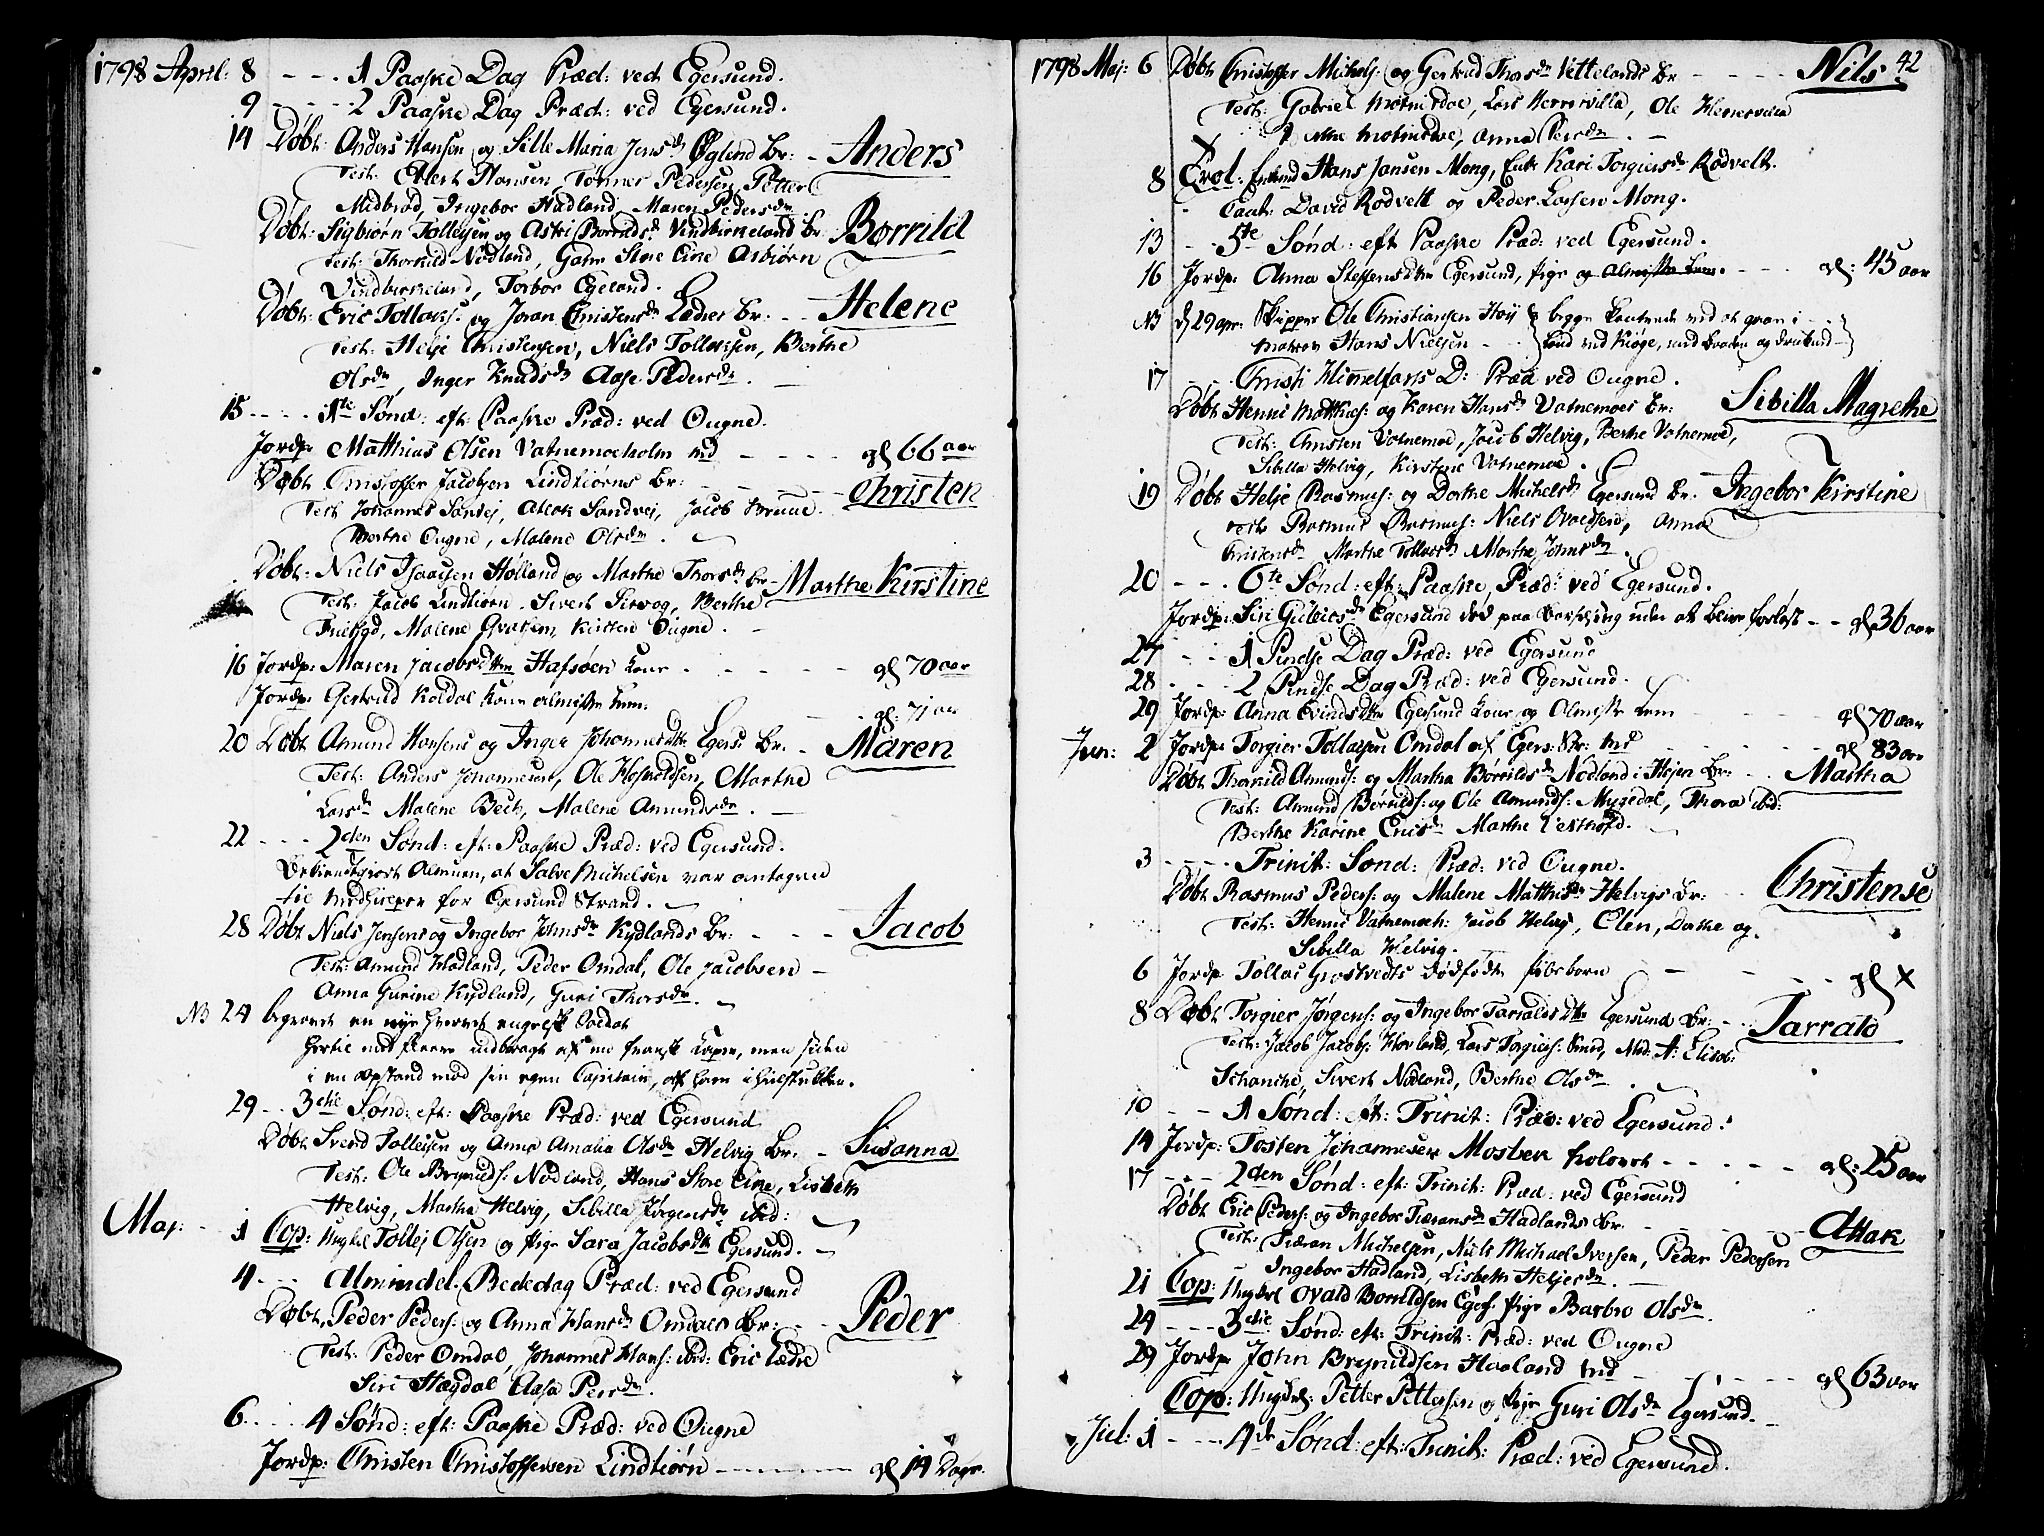 1798 Apriil: 8 - - - 1 Paaske Dag Præd: ved Egersund.
9 - - - - 2 Paaske Dag Præd: ved Egersund.
14 Døbt: Anders Hansen og Sille Maria Jens dr Øglend Br: - Anders
Test: Evert Hansen, Tønnes Pedersen, Petter
Midbrød, Ingebor Hadland Maren Peders dr
Døbt: Sigbiørn Tollefsen og Astri Borrilds dr Vindbirkeland Br Børrild
Test: Thorkild Nødland, Store Eine Asbiørn
Vindbirkeland, Torbor Egeland.
Døbt: Eric Tollacs: og Joran Christens dr Lædres Br: - - Helene
Test: Helje Christensen, Niels Tollacsen, Berthe
Ols dr, Inger Knuds dr Aase Peders dr. —
15 - - - - 1te Sønd: eft Paaske Præd: ved Ougne.
Jordp: Matthias Olsen Vatnemoeholm Md - - - - gl 66 aar
Døbt Christoffer Jacobsen Lindtiørns Br: - - - - - Christen
Test Johannes Sandvj, Attak Sandvej, Jacob Bruue.
Berthe Ougne, Malene Ols dr.
Døbt: Niels Isaacsen Hølland og Marthe Thors dr Br- Marthe Kirstine
Test: Jacob Lindtiørn. Sivert Sirvog, Berthe
Malene Kirsten Ougne. -
16 Jordp: Maren Jacobs dtter Hafsøen Kone - - - - - gl 70 aar
Jordp: Gertrud Koldal Kone almisse lem. - - gl: 71 aar
20 Døbt Amund Hansens og Inger Johannes dtr Egers: Br: - Maren
Test: Anders Johannesen, Ole Marthe
Lars dr Malene Bech, Malene Amunds dr. —
22 - - - 2den Sønd: eft: Paaske Præd: ved Egersund.
Bekiendtgiort Almuen, at Salve Michelsen var antagen
tie Medhielper for Egersund Strand.
28 Døbt Niels Jensens og Ingebor Johns dr Kydlands Br: - - - Jacob
Test: Amund Hadland, Peder Omdal, Ole Jacobsen -
Anna Gurine Kydland, Guri Thors dr.
NB 24 begravet en engelsk Soldat
med flere indbragt af en fransk Kaper, men siden
i en Opstand mod sin egen Capitain, af ham ihielstukken.
29 - - 3die Sønd: eft: Paaske Præd: ved Egersund
Døbt Svend Tollefsen og Anna Amalia Ols dr Helvig Br: - Susanna
Test: Ole Brynilds: Nødland, Hans Store Eine, Lisbeth
Helvig, Martha Helvig, Sibilla Jørgens dr ibid:
Maj: - 1 Cop: Ungkl Tollej Olsen og Pige Sara Jacobs dtr Egersund. -
4 - - - Almindel. Bededag Præd: ved Egersund
Døbt, Peder Peders: og Anna Hans dr Omdals Br: - - Peder
Test: Peder Omdal, Johannes Hans: ibid: Eric Lædre
Siri Hægdal Aasa Peers dr.
6 - - - 4 Sønd: eft: Paaske Præd: ved Ougne
Jordp: Christen Christoffersen Lindtiørn - - - gl 14 Dage.
42
1798 Maj: 6 Døbt Christoffer Michels: og Gertrud Thors dr Vettelands Br - - - - Nils
Test: Gabriel Motmesdoe, Lars Herrevilla, Ole
Motmesdoe, Anna Peers dr. —
8 Trol. Hans Jansen Mong, Enke Kari Torgiers dr Rødvelt.
Caut: David Rødvelt og Peder Larsen Mong.
13 - - 5te Sønd: eft Paaske Præd: ved Egersund.
16 Jordp: Anna Steffens dtter Egersund, Pige og almisse lem. - - - gl: 45 aar
NB d 29 apr: Skipper Ole Christiansen Høij begge
Matros Hans Nielsen - -
17 - - Christi Himmelfarts D: Præd ved Ougne.
Døbt Henric Matthias: og Karen Hans dr Vatnemoes Br: Sibilla Magrethe
Test: Christen Vatnemoe, Jacob Helvig, Berthe Vatnemoe,
Sibilla Helvig, Kirstine Vatnemoe.
19 Døbt Helje Rasmus: og Dorthe Michels dr Egersund Br. - Ingebor Kirstine
Test Rasmus Rasmus: Niels Anna
Christens dr Marthe Tollacs dr Marthe Johns dr
20 - - - 6te Sønd: eft: Paaske, Præd: ved Egersund.
Jordp: Siri Egersund død paa Barselseng uden at blive forløst - - gl 36 aar
27 - - 1 Pindse Dag Præd: ved Egersund
28 - - - 2 Pindse Dag Præd: ved Egersund.
29 Jordp: Anna Evinds dtter Egersund Kone og Almisse Lem - - gl 70 aar
Jun: 2 Jordp: Torgier Tollacsen Omdal af Egers: Str: Md - - - - gl 83 aar
Døbt Thorkild Amunds: og Martha Børrilds dr Nødland i Hejen Br: - - Martha
Test: Amund Børrilds: og Ole Amunds: Mygedal, Thora ibd:
Berthe Karine Erics dr Marthe
3 - - - - Trinit: Sønd: Præd: ved Ougne.
Døbt Rasmus Peders: og Malene Matthis dr Helvigs Br: - - Christense
Test: Henric Vatnemoe: Jacob Helvig, Elen, Dorthe og
Sibilla Helvig.
6 Jordp Tollac Grostvedts Dødfødte Pigebarn - - - gl X
8 Døbt Torgier Jørgens: og Ingebor Tarralds dtter Egersund Br: - - Tarrald
Test: Jacob Jacobs: Hovland, Lars Torgiers: Smed, Mad: A: Elisab:
Schanche, Sivert Nødland, Berthe Ols dr.
10 - - 1 Sønd: eft: Trinit: Præd: ved Egersund:
14 Jordp: Tosten Johannesen Mosben - - - - gl: 25 aar
17 - - - 2den Sønd: eft: Trinit: Præd: ved Egersund
Døbt Eric Peders: og Ingebor Tiærans dr Hadlands Br. - - - - Attak
Test: Tiæran Michelsen, Niels Michael Iversen, Peder Pedersen
Ingebor Hadland, Lisbeth Heljes dr. —
21 Cop: Ungkl Ovald Borrildsen Egers: Pige Barbro Ols dr.
24 - - - 3die Sønd: eft: Trinit: Præd: ved Ougne
29 Jordp John Brynildsen Haaland Md - - - - gl 63 aar
Cop: Ungkl: Petter Pettersen og Pige Guri Ols dr Egersund. -
Jul: 1 - - - 4de Sønd: eft: Trinit: Præd: ved Egersund.